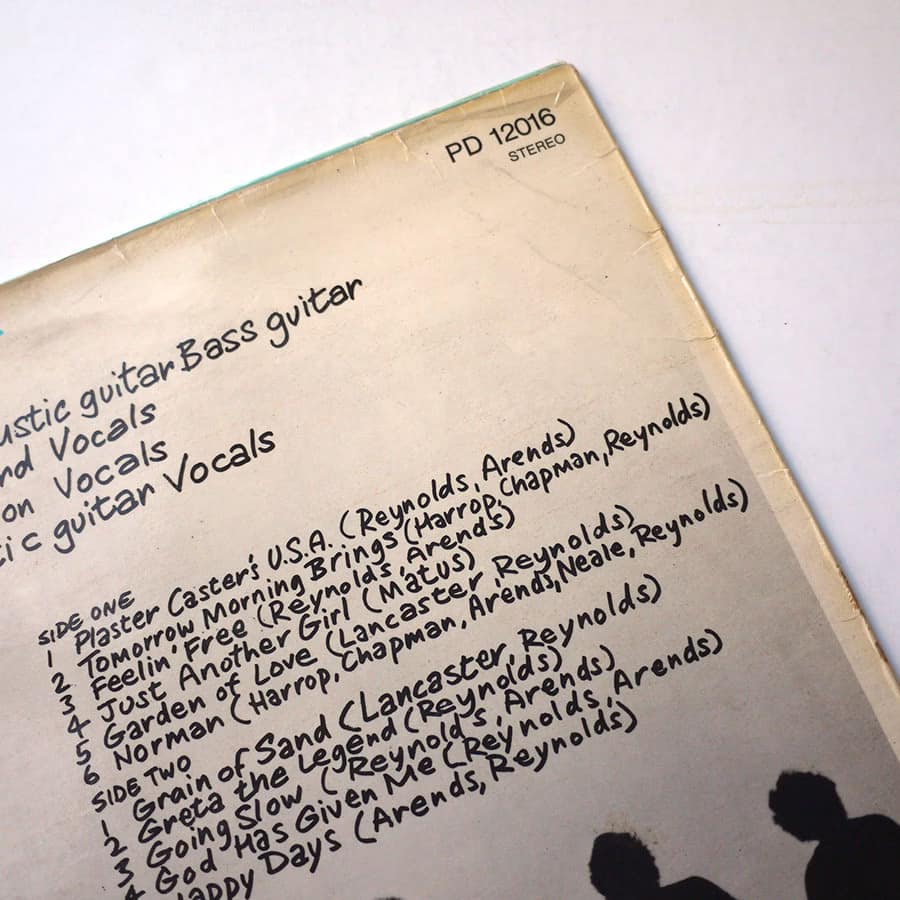 PD 12016
STEREO
guitar Bass guitar
Vocals
on Vocals
guitar Vocals
SIDE ONE
1 Plaster Caster's U.S.A. (Reynolds, Arends)
2 Tomorrow Morning Brings (Harrop, Chapman, Reynolds)
3 Feelin' Free (Reynolds, Arends)
4 Just Another Girl (Matus)
5 Garden of Love (Lancaster, Reynolds)
6 Norman (Harrop, Chapman, Arends, Neale, Reynolds)
SIDE TWO
1 Grain of Sand (Lancaster, Reynolds)
2 Greta the Legend (Reynolds)
3 Going Slow (Reynolds, Arends)
4 God Has Given Me (Reynolds, Arends)
Days (Arends, Reynolds)